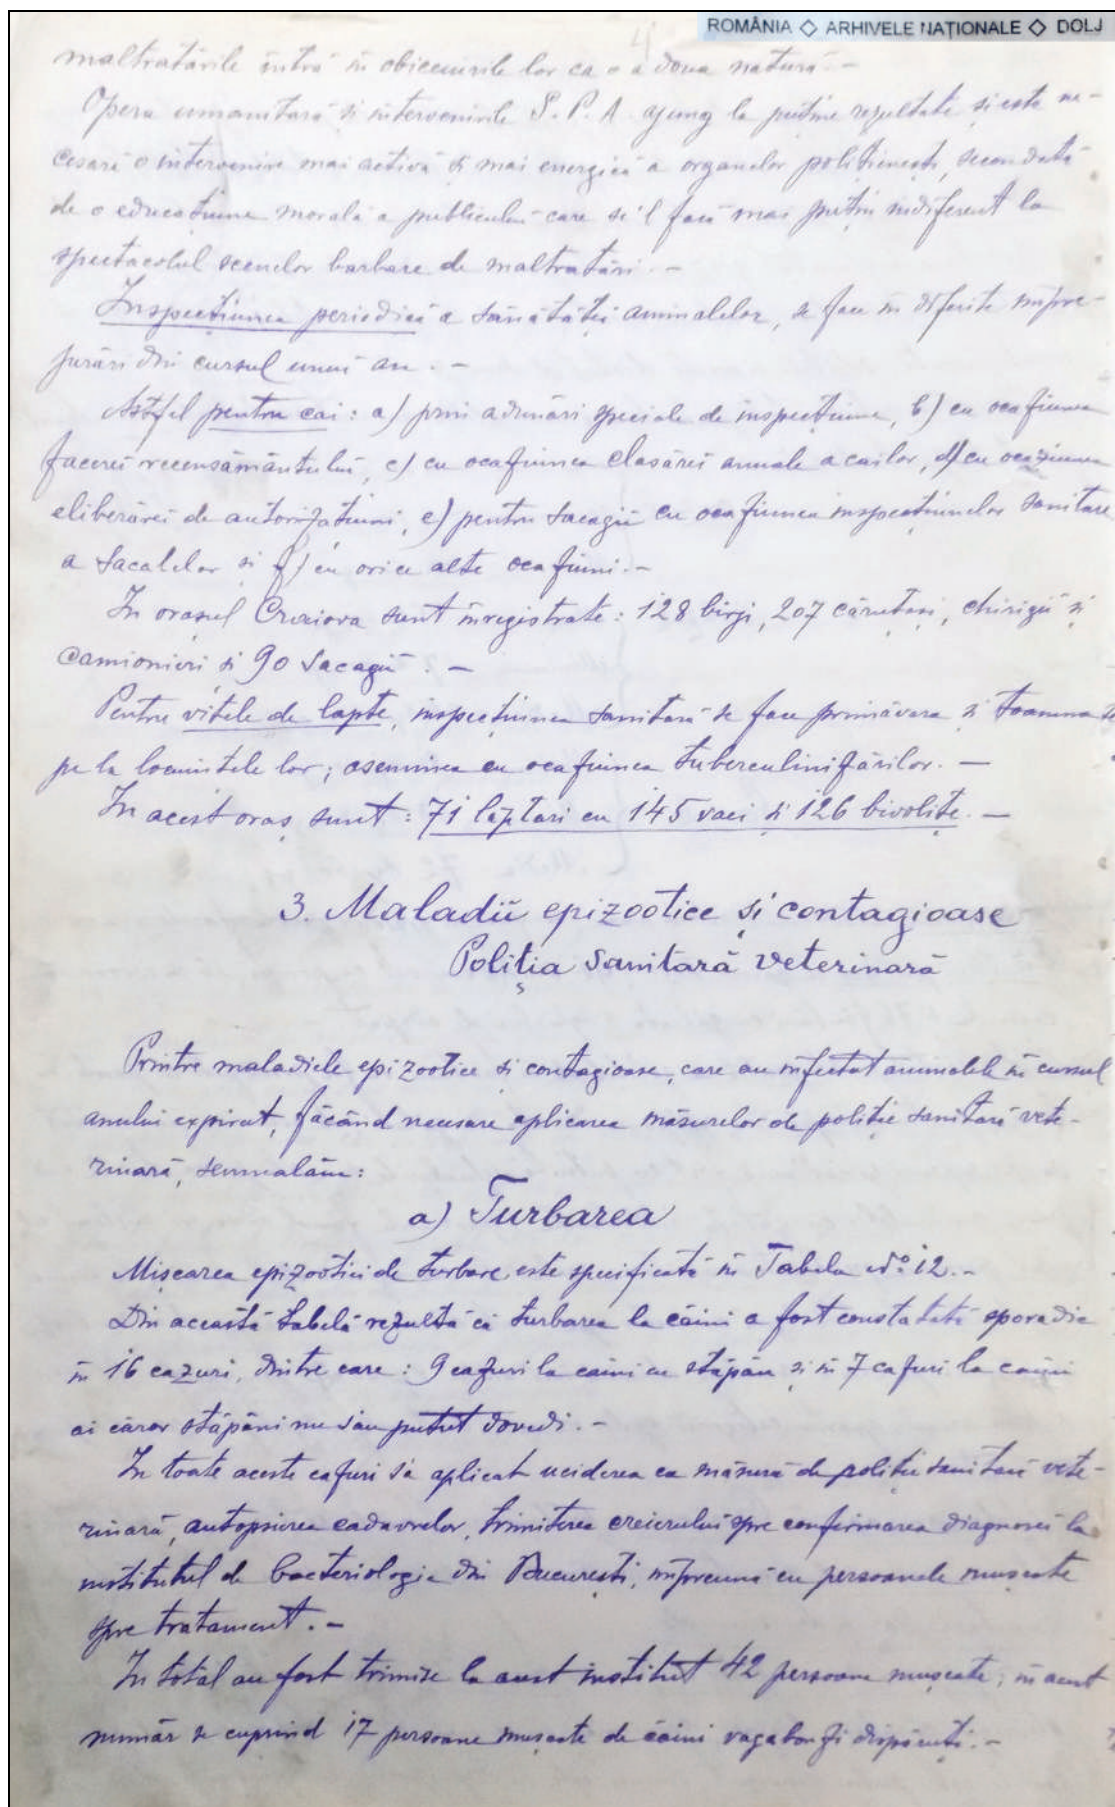 ROMÂNIA ◇ ARHIVELE NAȚIONALE ◇ DOLJ
maltratările intră în obiceiurile lor ca o a doua natură. –
Opera umanitară și intervenirile S. P. A. ajung la puține rezultate și este ne-
cesară o intervenire mai activă și mai energică a organelor polițienești, secondată
de o educațiune morală a publicului care să'l facă mai puțin indiferent la
spectacolul scenelor barbare de maltratări. –
Inspecțiunea periodică a sănătăței animalelor, se face în diferite împre-
jurări din cursul unui an. –
Astfel pentru cai: a) prin adunări speciale de inspecțiune, b) cu ocaziunea
facerei recensământului, c) cu ocaziunea clasărei anuale a cailor, d) cu ocaziunea
eliberărei de autorizațiuni, e) pentru sacagii cu ocaziunea inspecțiunelor sanitare
a sacalelor și f) cu orice alte ocaziuni. –
In orașul Craiova sunt înregistrate: 128 birji, 207 căruțași, chirigii și
camionieri și 90 sacagii. –
Pentru vitele de lapte, inspecțiunea sanitară se face primăvara și toamna
pe la locuințele lor; asemenea cu ocaziunea tuberculinizărilor. –
In acest oraș sunt: 71 lăptari cu 145 vaci și 126 bivolițe. –
3. Maladii epizootice și contagioase
Poliția sanitară veterinară
Printre maladiele epizootice și contagioase, care au infectat animalele în cursul
anului expirat, făcând necesare aplicarea măsurelor de poliție sanitară vete-
rinară, semnalăm:
a) Turbarea
Mișcarea epizootiei de turbare, este specificată în Tabela No. 12. –
Din această tabelă rezultă că turbarea la câini a fost constatată sporadic
în 16 cazuri, dintre care: 9 cazuri la câini cu stăpân și în 7 cazuri la câini
ai căror stăpâni nu s'au putut dovedi. –
In toate aceste cazuri s'a aplicat uciderea ca măsură de poliție sanitară vete-
rinară, autopsierea cadavrelor, trimiterea creierului spre confirmarea diagnozei la
institutul de bacteriologie din București, împreună cu persoanele mușcate
spre tratament. –
In total au fost trimise la acest institut 42 persoane mușcate; în acest
număr se cuprind 17 persoane mușcate de câini vagabonzi dispăruți. –